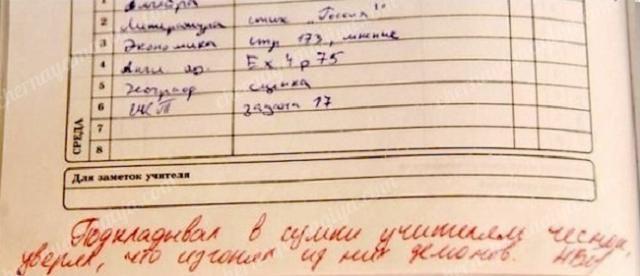 1 Алгебра
2 Литература стих „Россия"
3 Экономика стр 173, мнение
4 Англ яз. Ex 4 p 75
5 Географ сценка
6 задача 17
7
8
СРЕДА
Для заметок учителя
Подкладывал в сумки учителям чеснок,
уверял, что изгонял из них демонов.